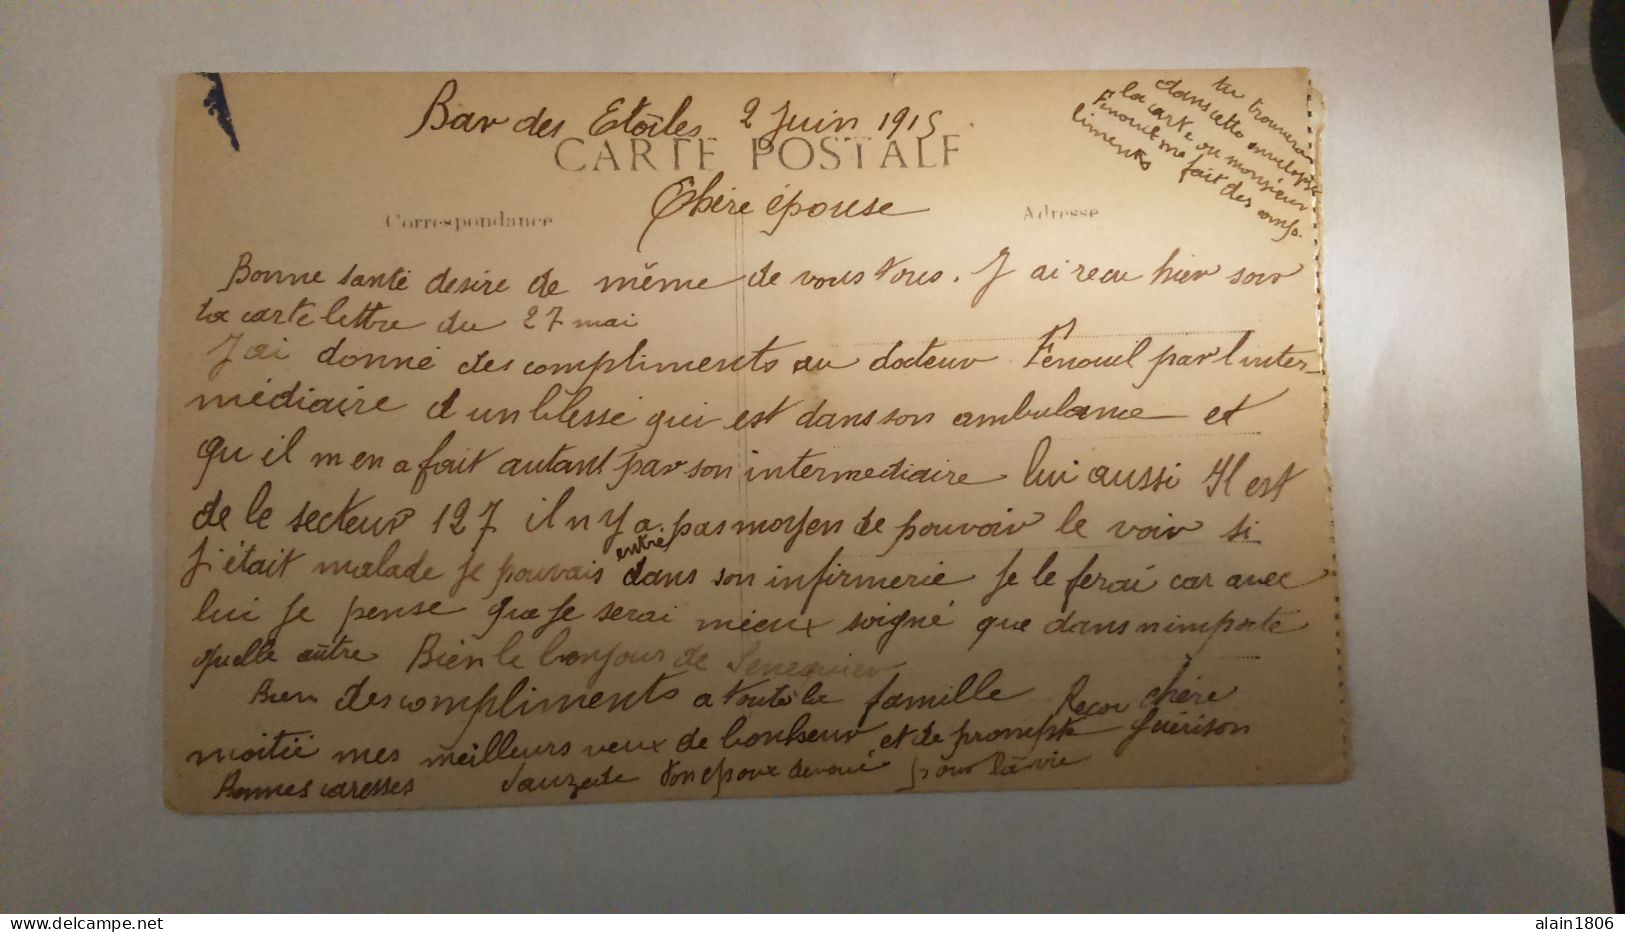 Bar des Etoiles 2 Juin 1915.
tu trouveras
dans cette enveloppe
la carte ou monsieur
Fenouil me fait des comp-
liments
CARTE POSTALE
Chère épouse
Correspondance
Adresse
Bonne santé desire de même de vous tous. J ai recu hier soir
ta carte lettre du 27 mai
J ai donné des compliments au docteur Fenouil par l inter-
médiaire d un blessé qui est dans son ambulance et
qu il m en a fait autant par son intermediaire lui aussi Il est
de le secteur 127 il n y a pas moyen de pouvoir le voir si
j'était malade je pouvais entré dans son infirmerie je le ferai car avec
lui je pense que je serai mieux soigné que dans nimporte
quelle autre Bien le bonjour de Senequier
Bien des compliments a toute la famille Reçoi chère
moitié mes meilleurs veux de bonheur et de prompte guérison
Bonnes caresses Sauzede ton epoux devoué pour la vie
delcampe.net
alain1806